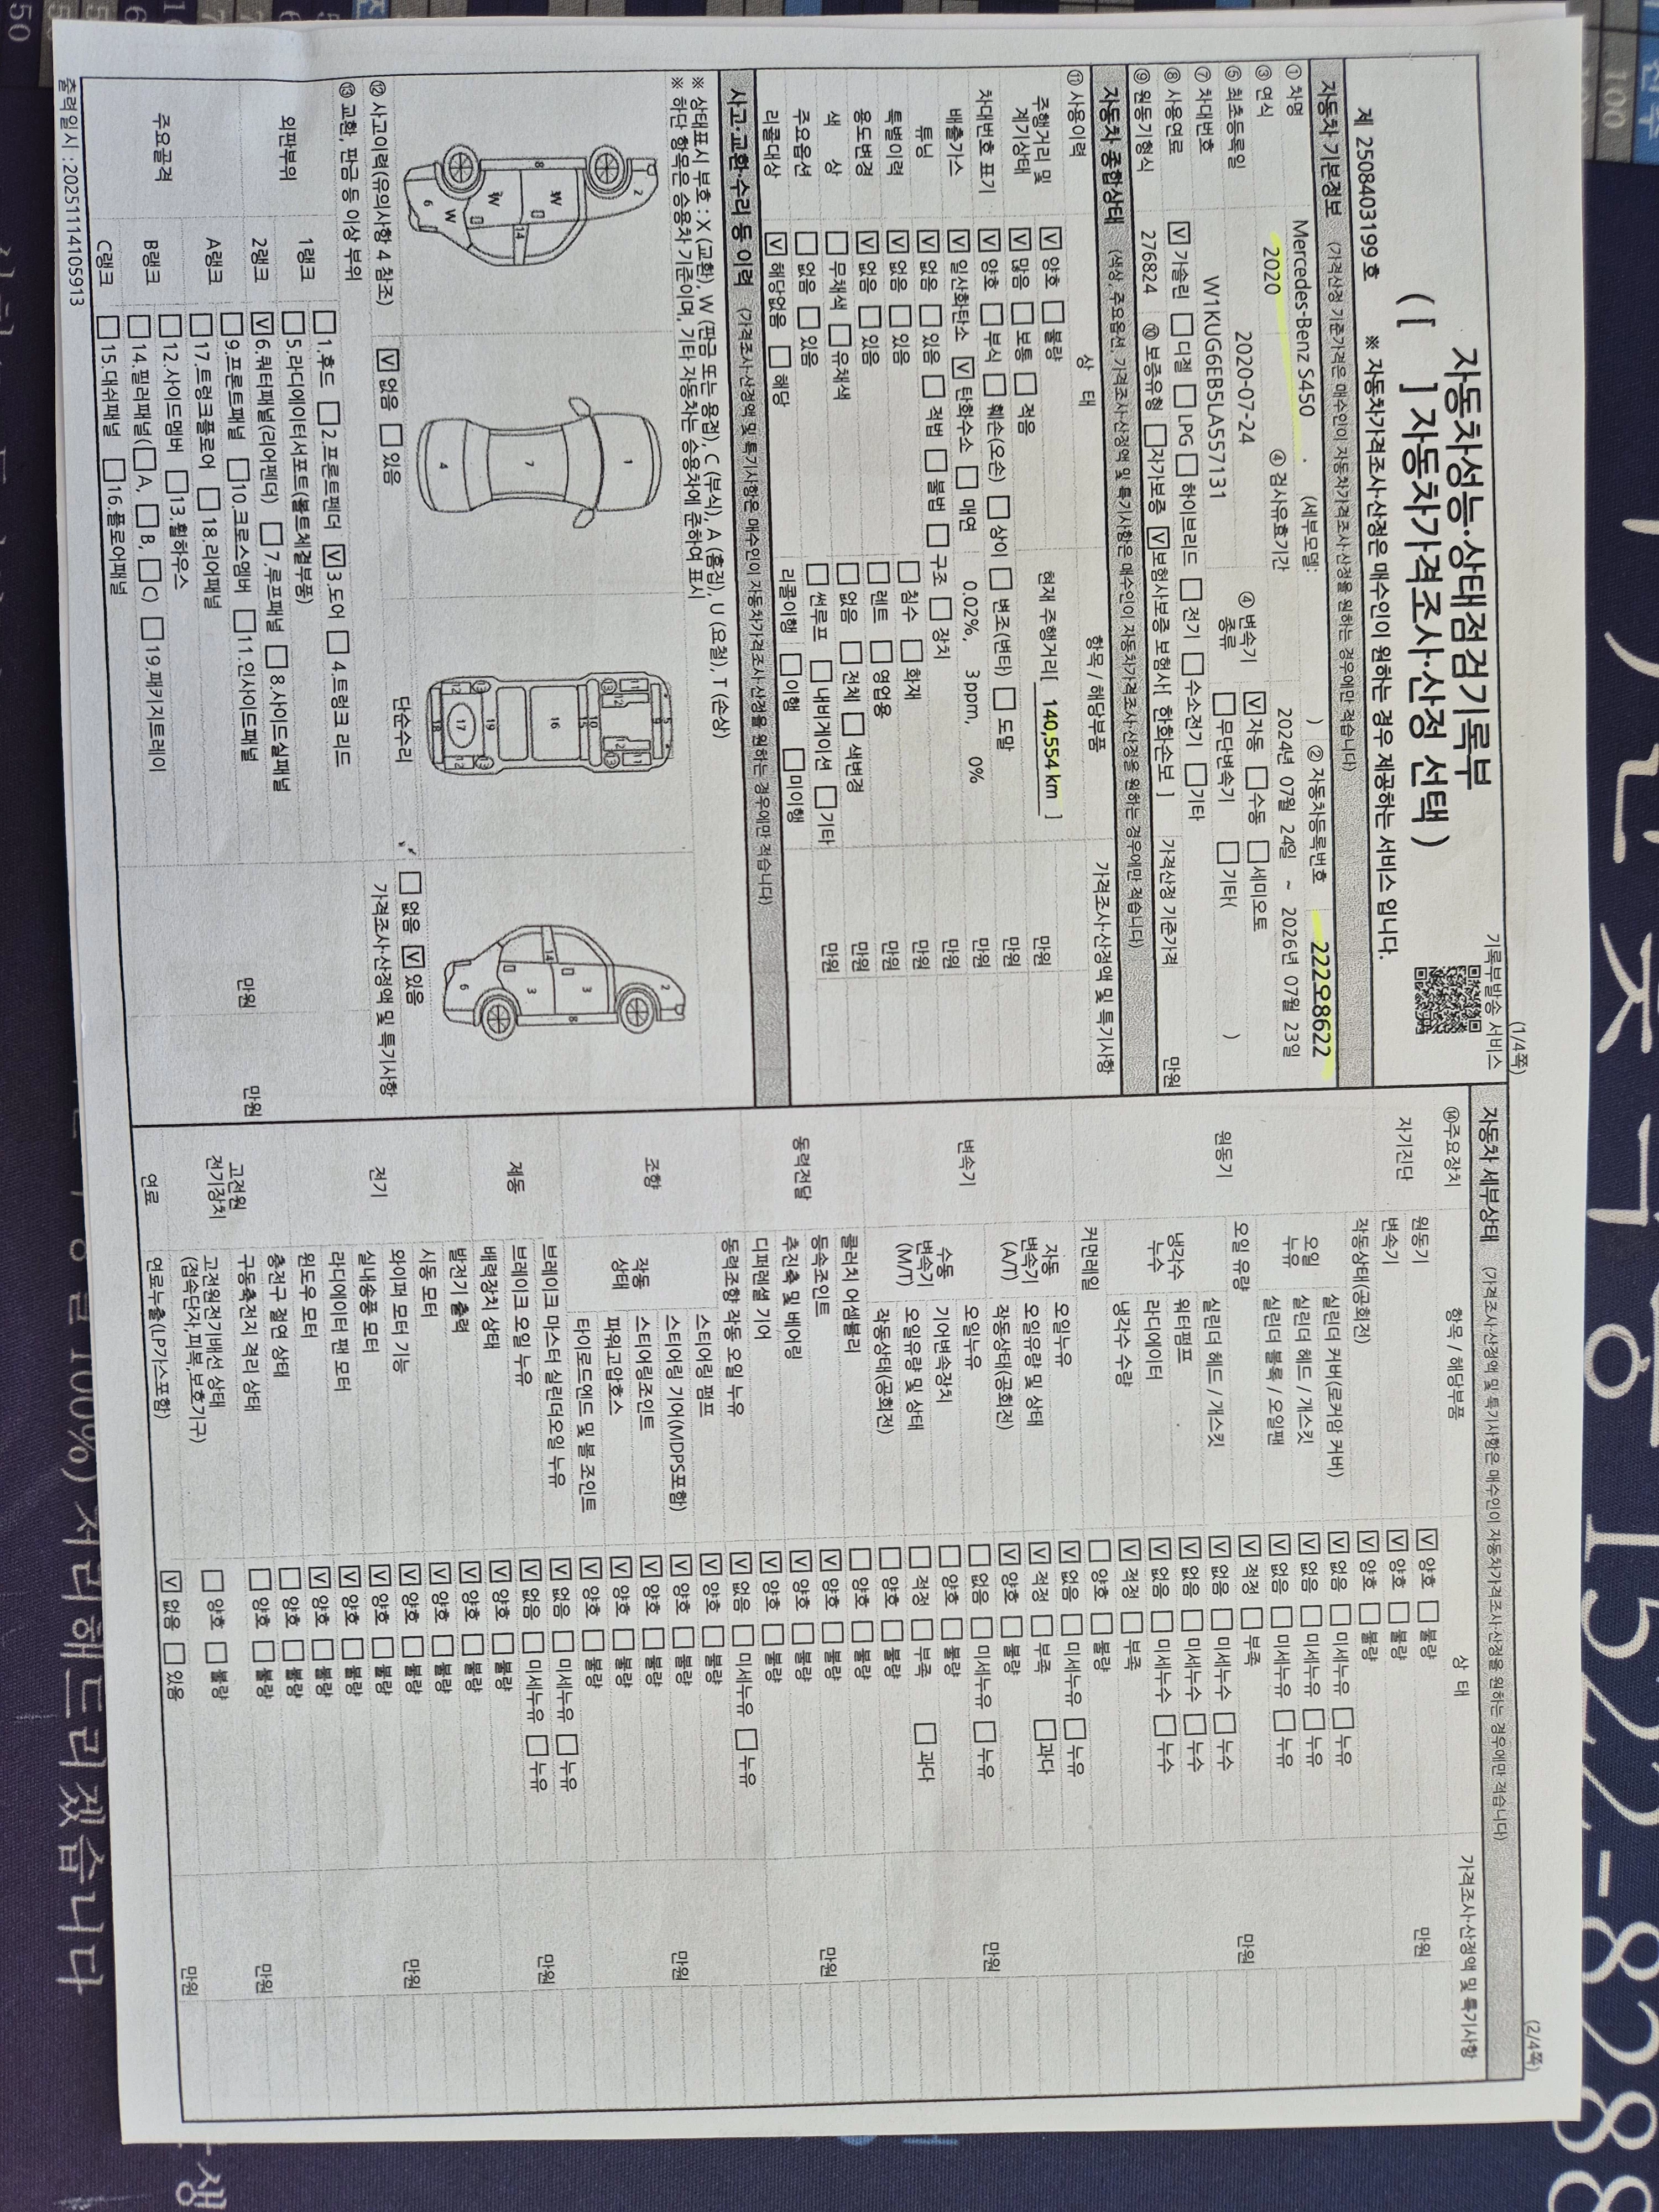 (1/4쪽)
기록부발송 서비스
자동차성능·상태점검기록부
( [ ] 자동차가격조사·산정 선택 )
제 2508403199 호
※ 자동차가격조사·산정은 매수인이 원하는 경우 제공하는 서비스 입니다.
자동차 기본정보 (가격산정 기준가격은 매수인이 자동차가격조사·산정을 원하는 경우에만 적습니다)
① 차명 Mercedes-Benz S450 (세부모델: ) ② 자동차등록번호 222오8622
③ 연식 2020 ④ 검사유효기간 2024년 07월 24일 ~ 2026년 07월 23일
⑤ 최초등록일 2020-07-24 ④ 변속기 종류 V 자동 수동 세미오토
무단변속기 기타( )
⑦ 차대번호 W1KUG6EB5LA557131
⑧ 사용연료 V 가솔린 디젤 LPG 하이브리드 전기 수소전기 기타
⑨ 원동기형식 276824 ⑩ 보증유형 자가보증 V 보험사보증 보험사[ 한화손보 ] 가격산정 기준가격 만원
자동차 종합상태 (색상, 주요옵션, 가격조사·산정액 및 특기사항은 매수인이 자동차가격조사·산정을 원하는 경우에만 적습니다)
⑪ 사용이력 상 태 항목 / 해당부품 가격조사·산정액 및 특기사항
주행거리 및 계기상태 V 양호 불량 현재 주행거리[ 140,554 km ] 만원
V 많음 보통 적음 만원
차대번호 표기 V 양호 부식 훼손(오손) 상이 변조(변타) 도말 만원
배출가스 V 일산화탄소 V 탄화수소 매연 0.02%, 3 ppm, 0% 만원
튜닝 V 없음 있음 적법 불법 구조 장치 만원
특별이력 V 없음 있음 침수 화재 만원
용도변경 V 없음 있음 렌트 영업용 만원
색 상 무채색 유채색 없음 전체 색변경
주요옵션 없음 있음 썬루프 내비게이션 기타 만원
리콜대상 V 해당없음 해당 리콜이행 이행 미이행
사고·교환·수리 등 이력 (가격조사·산정액 및 특기사항은 매수인이 자동차가격조사·산정을 원하는 경우에만 적습니다)
※ 상태표시 부호 : X (교환), W (판금 또는 용접), C (부식), A (흠집), U (요철), T (손상)
※ 하단 항목은 승용차 기준이며, 기타 자동차는 승용차에 준하여 표시
2 8 W W W 14 6
1 7 4
5 9 10 16 19 17 18
2 3 3 14 8 6
⑫ 사고이력(유의사항 4 참조) V 없음 있음 단순수리 없음 V 있음
⑬ 교환, 판금 등 이상 부위 가격조사·산정액 및 특기사항
외판부위 1랭크 1.후드 2.프론트펜더 V 3.도어 4.트렁크 리드
5.라디에이터서포트(볼트체결부품)
2랭크 V 6.쿼터패널(리어펜더) 7.루프패널 8.사이드실패널 만원 만원
주요골격 A랭크 9.프론트패널 10.크로스멤버 11.인사이드패널
17.트렁크플로어 18.리어패널
B랭크 12.사이드멤버 13.휠하우스
14.필러패널( A, B, C) 19.패키지트레이
C랭크 15.대쉬패널 16.플로어패널
출력일시 : 20251114105913
(2/4쪽)
자동차 세부상태 (가격조사·산정액 및 특기사항은 매수인이 자동차가격조사·산정을 원하는 경우에만 적습니다)
⑭주요장치 항목 / 해당부품 상 태 가격조사·산정액 및 특기사항
자기진단 원동기 V 양호 불량 만원
변속기 V 양호 불량
원동기 작동상태(공회전) V 양호 불량 만원
오일 누유 실린더 커버(로커암 커버) V 없음 미세누유 누유
실린더 헤드 / 개스킷 V 없음 미세누유 누유
실린더 블록 / 오일팬 V 없음 미세누유 누유
오일 유량 V 적정 부족
냉각수 누수 실린더 헤드 / 개스킷 V 없음 미세누수 누수
워터펌프 V 없음 미세누수 누수
라디에이터 V 없음 미세누수 누수
냉각수 수량 V 적정 부족
커먼레일 양호 불량
변속기 자동 변속기 (A/T) 오일누유 V 없음 미세누유 누유 만원
오일유량 및 상태 V 적정 부족 과다
작동상태(공회전) V 양호 불량
수동 변속기 (M/T) 오일누유 없음 미세누유 누유
기어변속장치 양호 불량
오일유량 및 상태 적정 부족 과다
작동상태(공회전) 양호 불량
동력전달 클러치 어셈블리 양호 불량 만원
등속조인트 V 양호 불량
추진축 및 베어링 V 양호 불량
디퍼렌셜 기어 V 양호 불량
조향 동력조향 작동 오일 누유 V 없음 미세누유 누유 만원
작동 상태 스티어링 펌프 V 양호 불량
스티어링 기어(MDPS포함) V 양호 불량
스티어링조인트 V 양호 불량
파워고압호스 V 양호 불량
타이로드엔드 및 볼 조인트 V 양호 불량
제동 브레이크 마스터 실린더오일 누유 V 없음 미세누유 누유 만원
브레이크 오일 누유 V 없음 미세누유 누유
배력장치 상태 V 양호 불량
전기 발전기 출력 V 양호 불량 만원
시동 모터 V 양호 불량
와이퍼 모터 기능 V 양호 불량
실내송풍 모터 V 양호 불량
라디에이터 팬 모터 V 양호 불량
윈도우 모터 V 양호 불량
고전원 전기장치 충전구 절연 상태 양호 불량 만원
구동축전지 격리 상태 양호 불량
고전원전기배선 상태 (접속단자,피복,보호기구) 양호 불량
연료 연료누출(LP가스포함) V 없음 있음 만원
1522-8288
100%) 처리해드리겠습니다